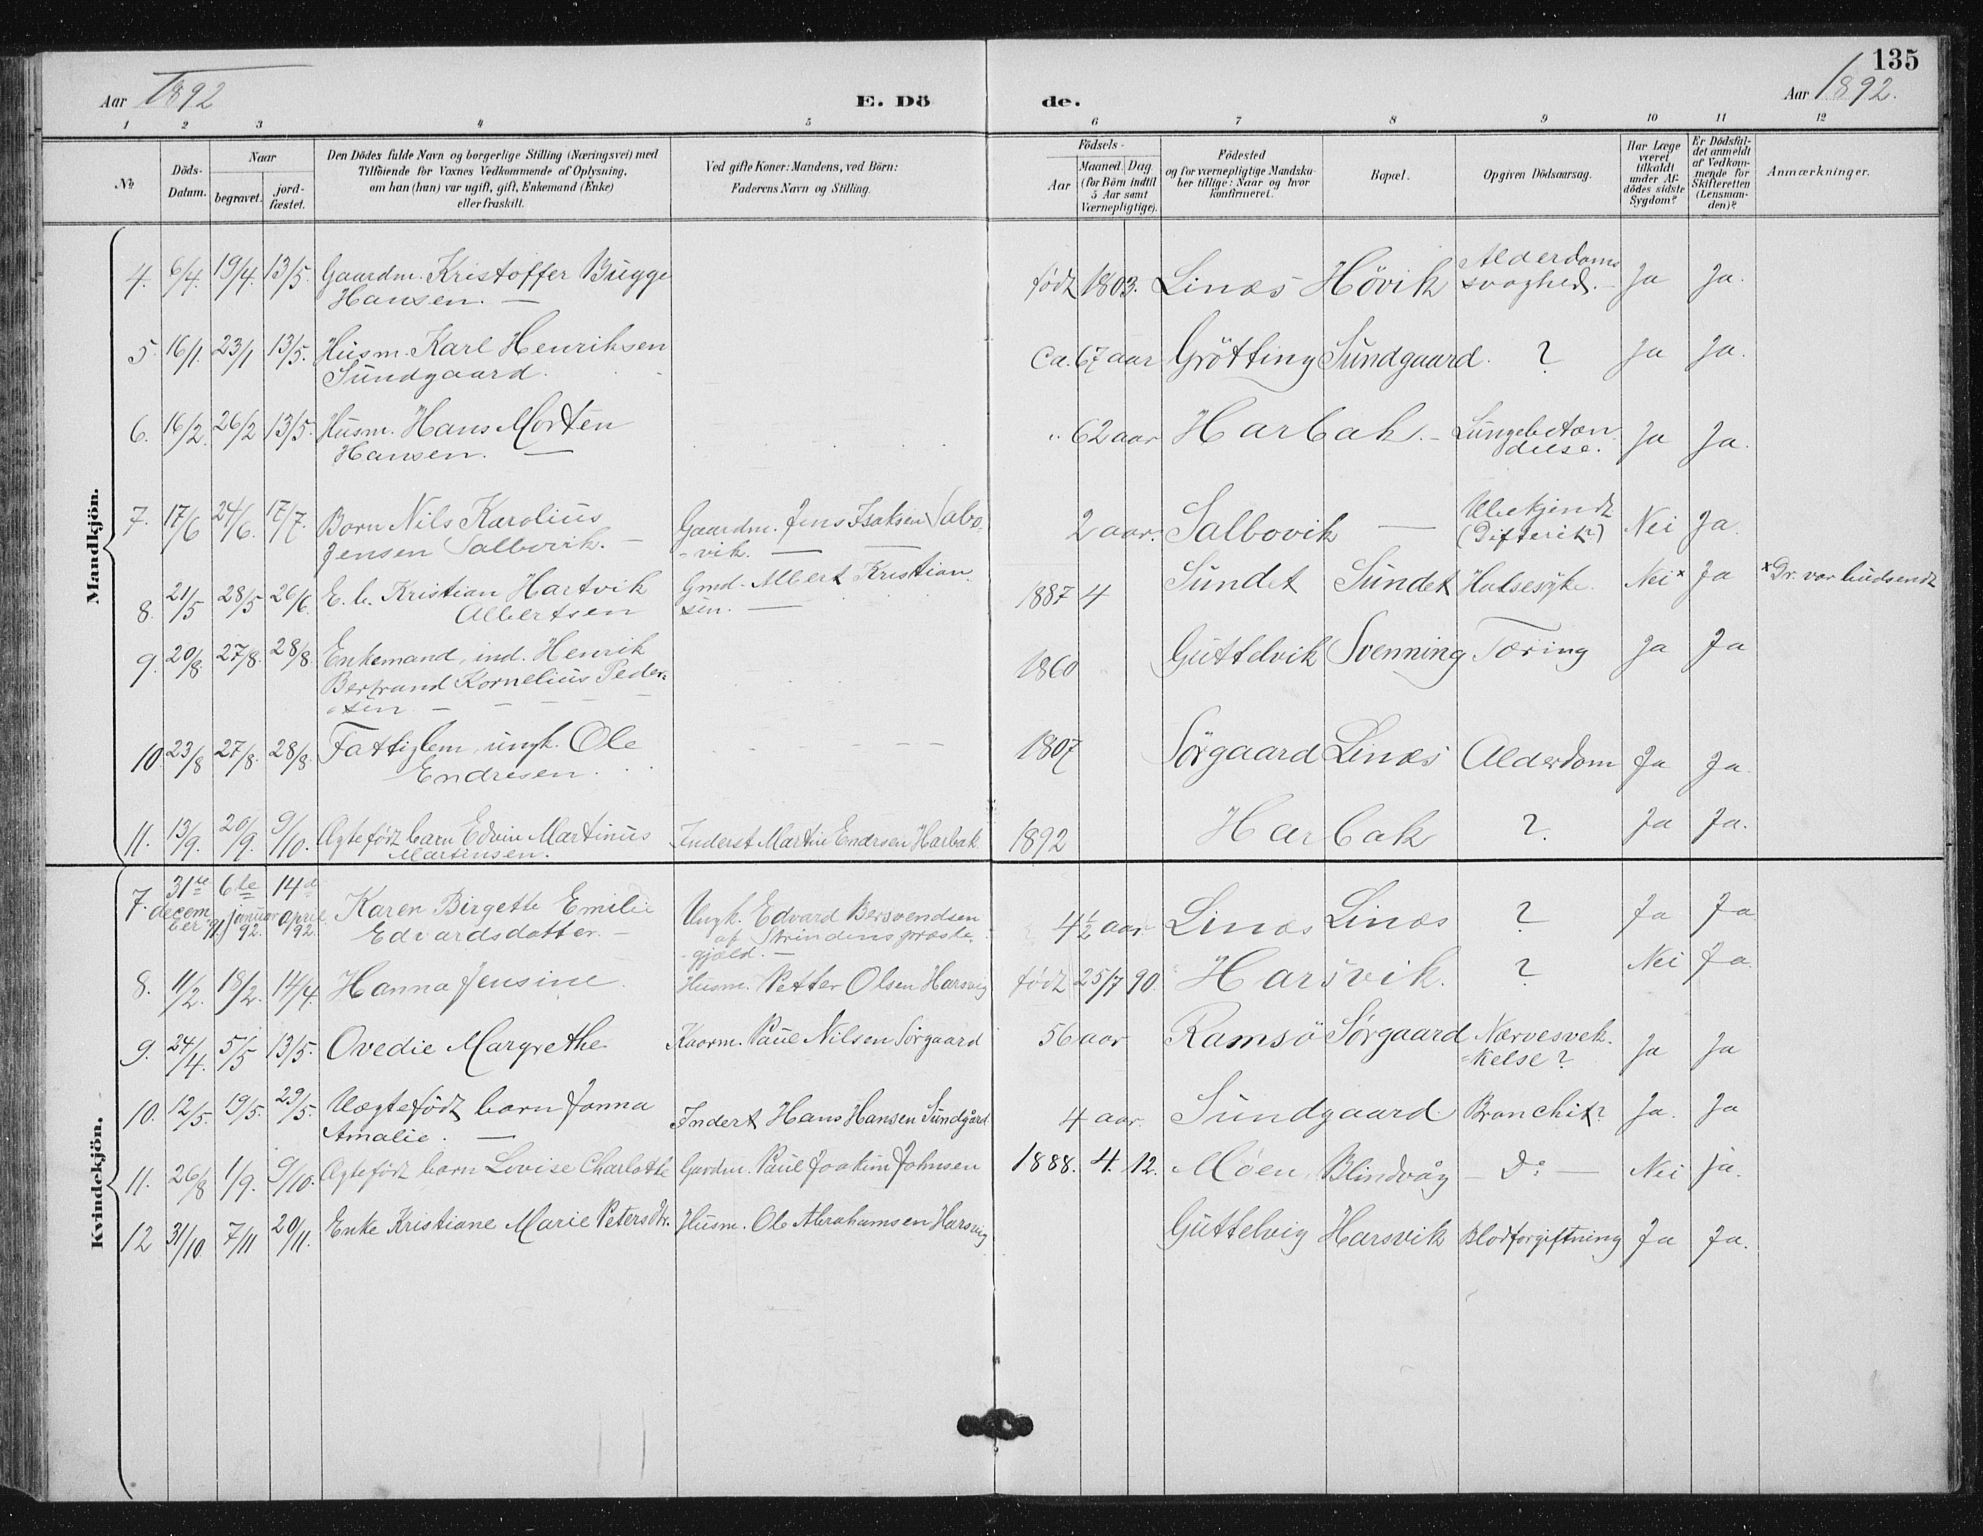 135
Aar 1892 E. Dö de. Aar 1892.
1 2 3 4 5 6 7 8 9 10 11 12
No
Döds-Datum.
Naar
begravet.
jord-fæstet.
Den Dödes fulde Navn og borgerlige Stilling (Næringsvei) med
Tilföiende for Voxnes Vedkommende af Oplysning,
om han (hun) var ugift, gift, Enkemand (Enke)
eller fraskilt.
Ved gifte Koner: Mandens, ved Börn:
Faderens Navn og Stilling.
Födsels-
Aar
Maaned. Dag
(for Börn indtil
5 Aar samt
Værnepligtige).
Födested
og for værnepligtige Mandska-
ber tillige: Naar og hvor
konfirmeret.
Bopæl.
Opgiven Dödsaarsag.
Har Læge
været
tilkaldt
under Af-
dödes sidste
Sygdom?
Er Dödsfal-
det anmeldt
af Vedkom-
mende for
Skifteretten
(Lensman-
den)?
Anmærkninger.
Mandkjön.
4. 6/4. 19/4. 13/5. Gaardm. Kristoffer Bugge
Hansen. —
født 1803. Linæs Hövik Alderdoms
svaghed. Ja Ja.
5. 16/1. 23/1 13/5. Husm. Karl Henriksen
Sundgaard.
Ca. 67 aar Grötting Sundgaard. ? Ja Ja.
6. 16/2. 26/2 13/5. Husm. Hans Morten
Hansen. —
62 aar Harbak. — Lungebetæn
delse. Ja Ja.
7. 17/6 24/6. 17/7. Barn Nils Karolius
Jensen Salbovik. —
Gaardm. Jens Isaksen Salbo
-vik. —
2 aar. Salbovik — Ubekjendt
(Difterik?) Nei Ja.
8. 21/5 28/5 26/6. E. b. Kristian Hartvik
Albertsen
Gmd. Albert Kristian
sen. —
1887 4 Sundet Sundet Halsesyke. Nei x Ja x Dr. var budsendt
9. 20/8. 27/8. 28/8. Enkemand, ind. Henrik
Bertrand Kornelius Peder-
sen —
1860 Guttelvik Svenning Tæring Ja Ja
10 23/8 27/8. 28/8. Fattiglem, ungk. Ole
Endresen.
1807 Sörgaard Linæs Alderdom Ja Ja.
11. 13/9. 20/9. 9/10. Ægtefödt barn Edvin Martinus
Martinsen.
Inderst Martin Endrsen Harbak
1892 Harbak ? Ja Ja.
Kvindekjön.
7. 31te decem ber 91. 6te januar 92. 14de april 92. Karen Birgette Emilie
Edvardsdatter. —
Ungk. Edvard Bersvendsen
af Strindens præste-
gjæld. —
4½ aar Linæs Linæs ? Ja Ja
8. 11/2. 18/2. 14/4 Hanna Jensine.
Husm. Petter Olsen Harsvig
født 25/7 90. Harsvik. ? Nei Ja
9. 24/4. 5/5 13/5. Ovedie Margrethe
Kaarm. Paul Nilsen Sörgaard
56 aar Ramsö Sörgaard Nærvesvek.
-kelse? Ja Ja
10. 12/5. 19/5. 29/5. Uægtefödt barn Janna
Amalie. —
Indert Hans Hansen Sundgård
4 aar. Sundgaard. Bronchit? Ja. Ja
11. 26/8 1/9. 9/10. Ægtefödt barn Lovise Charlotte
Gardm. Paul Joakim Johnsen
1888. 4. 12. Möen Blindvåg — Do — Nei ja.
12 31/10. 7/11 20/11. Enke Kristiane Marie Petersdtr.
Husm. Ole Abrahamsen Harsvig
Guttelvig Harsvik Blodforgiftning Ja Ja.